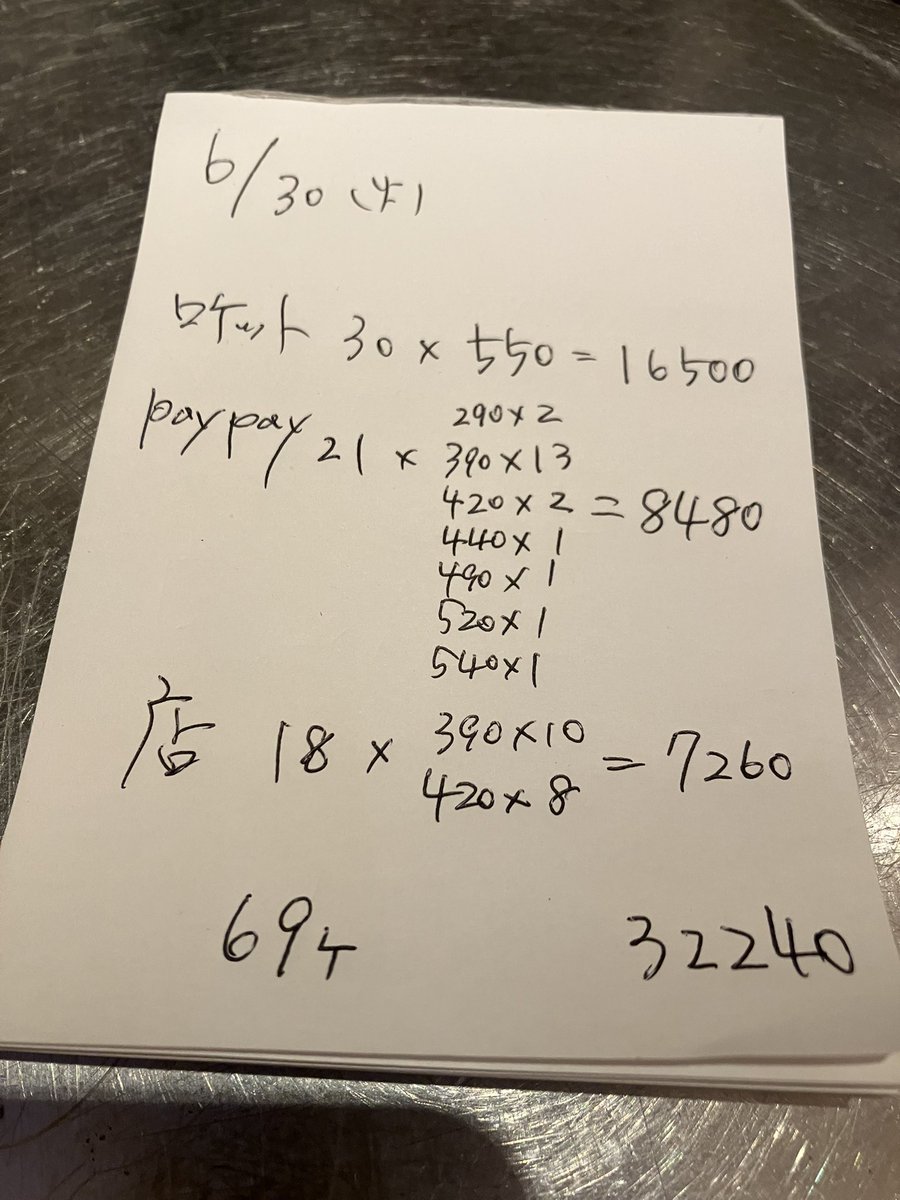 6/30 (火)
ロケット 30 × 550 = 16500
paypay 21 × 290×2
390×13
420×2 = 8480
440×1
490×1
520×1
540×1
店 18 × 390×10 = 7260
420×8
69ケ 32240